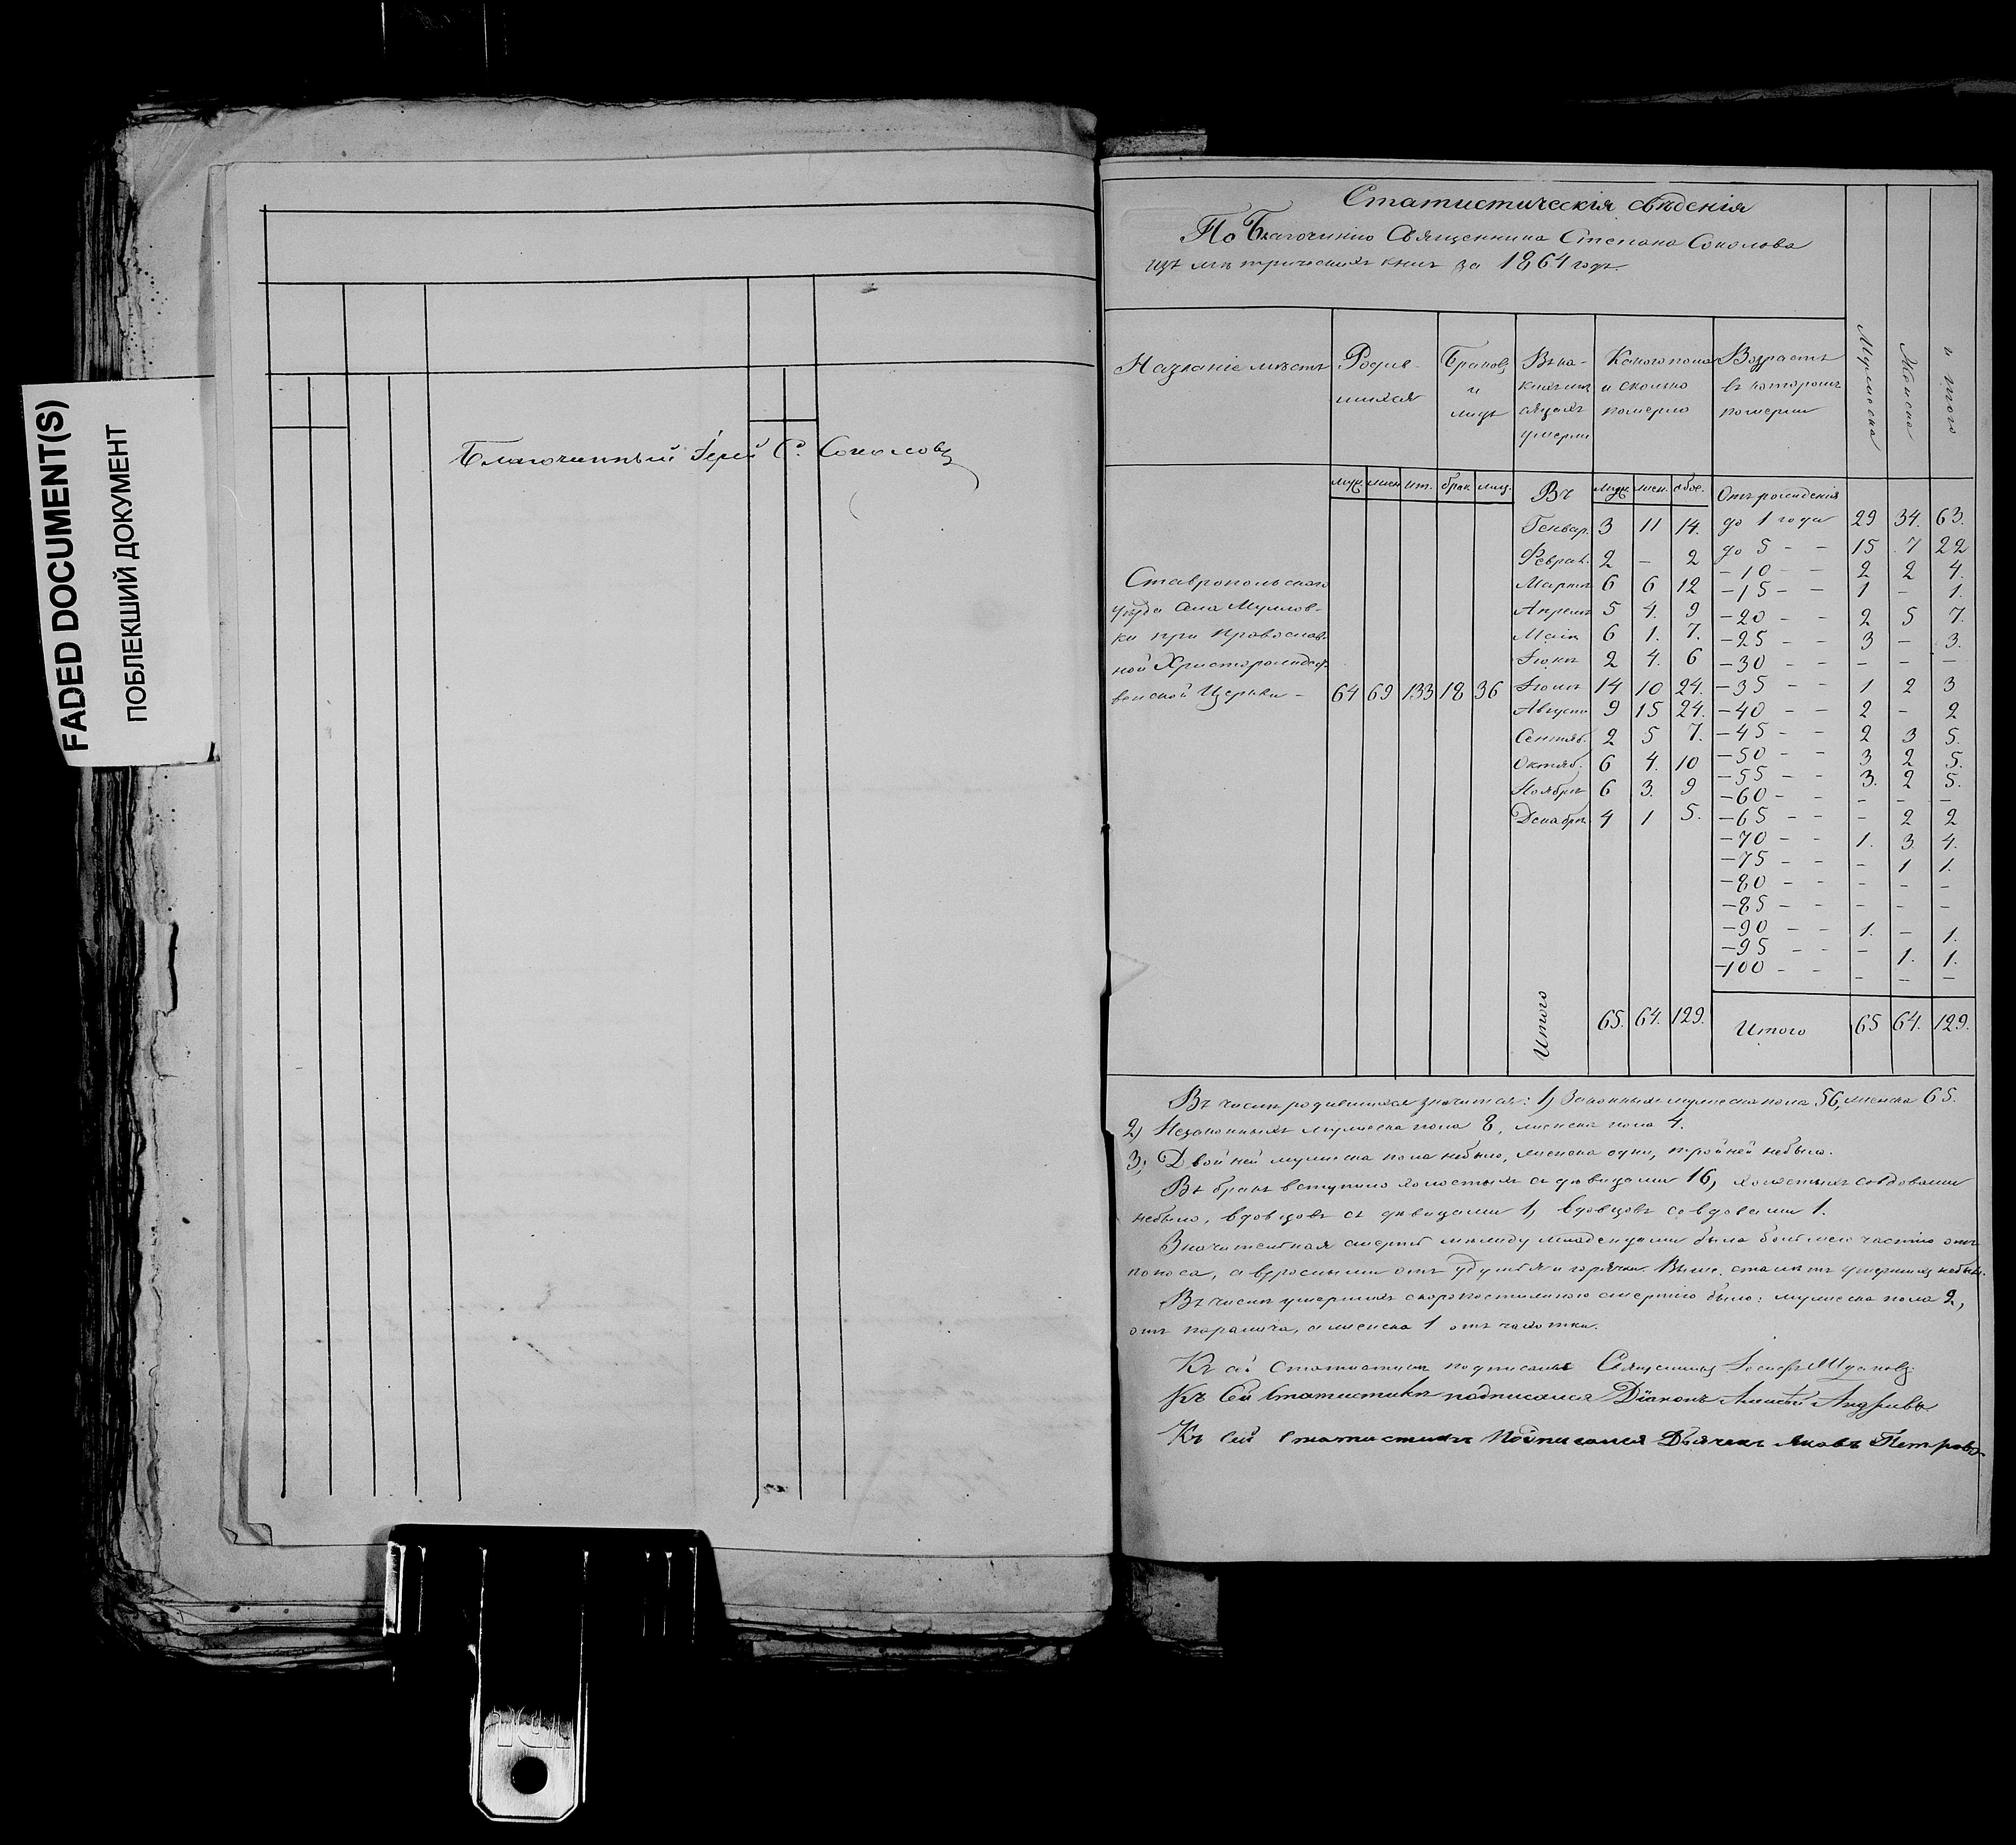 FADED DOCUMENT(S)
ПОБЛЕКШИЙ ДОКУМЕНТ
Благочинный Іерей С. Соколовъ
Статистическія свѣденія
По Благочинію Священника Степана Соколова
изъ метрическихъ книгъ за 1864 годъ.
Названіе мѣстъ
Родив-
шихся
Браковъ
и
лицъ
Въ ка-
кихъ мѣ-
сяцахъ
умерли
Какого пола
и сколько
померло
Возрастъ
въ которомъ
померли
Мужеска
Женска
и того
муж. жен. ит. брак. лиц. Въ муж. жен. обое. Отъ рожденія
Ставропольскаго
уѣзда села Муллов-
ки при Православ-
ной Христорождест-
венской Церкви -
64 69 133 18 36
Генвар. 3 11 14.
Феврал. 2 - 2
Мартъ 6 6 12
Апрель 5 4. 9
Маій 6 1. 7.
Іюнь 2 4. 6
Іюль 14 10 24.
Августъ 9 15 24.
Сентяб. 2 5 7.
Октяб. 6 4. 10
Ноябрь 6 3. 9
Декабрь 4 1 5.
Итого 65. 64. 129.
до 1 года 29 34. 63.
до 5 - - 15 7 22
-10 - - 2 2 4.
-15 - - 1 - 1.
-20 - - 2 5 7.
-25 - - 3 - 3.
-30 - - - - -
-35 - - 1 2 3
-40 - - 2 - 2
-45 - - 2 3 5.
-50 - - 3 2 5.
-55 - - 3. 2 5.
-60 - - - - -
-65 - - - 2 2
-70 - - 1. 3. 4.
-75 - - - 1 1.
-80 - - - - -
-85 - - - - -
-90 - - 1. - 1.
-95 - - - 1. 1.
-100 - - - - -
Итого 65 64. 129.
Въ числѣ родившихся значится: 1) Законныхъ мужеска пола 56, женска 65.
2) Незаконныхъ мужеска пола 8, женска пола 4.
3) Двойней мужеска пола небыло, женска одни, тройней небыло.
Въ бракъ вступило холостыхъ съ дѣвицами 16, холостыхъ со вдовами
небыло, вдовцовъ съ дѣвицами 1, вдовцовъ со вдовами 1.
Значительная смерть между младенцами была большею частію отъ
поноса, а взрослыми отъ удушья и горячки. Выше ста лѣтъ умершихъ небыло.
Въ числѣ умершихъ скоропостижною смертію было: мужеска пола 2,
отъ паралича, а женска 1 отъ чахотки.
Къ сей статистикѣ подписался Священникъ Іосифъ
Къ Сей Статистикѣ подписался Діаконъ Алексѣй Андреевъ
Къ Сей Статистикѣ Подписался Дьячекъ Яковъ Петровъ